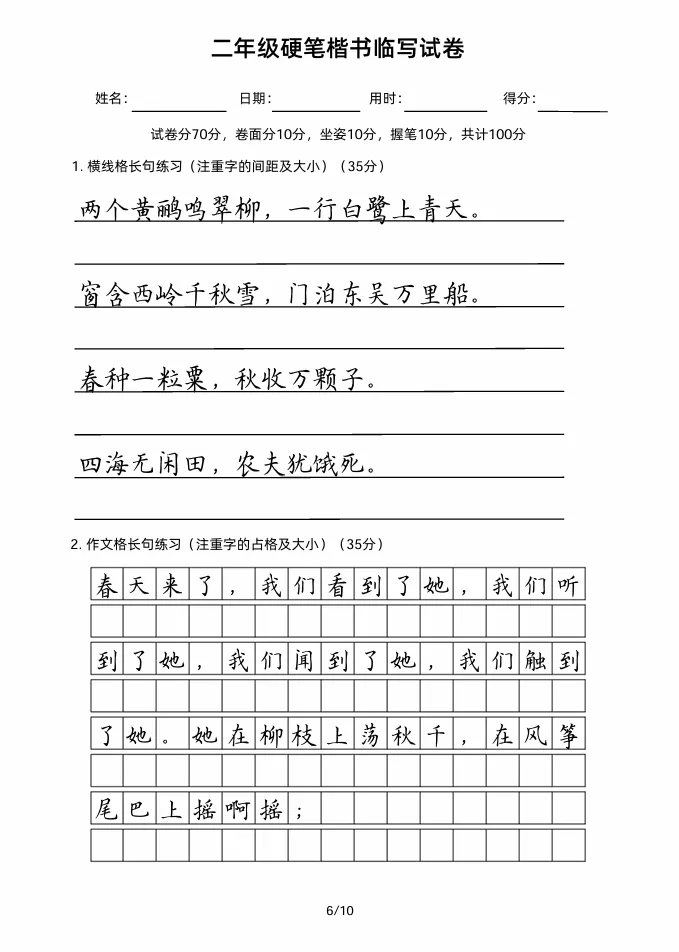 二年级硬笔楷书临写试卷
姓名： 日期： 用时： 得分：
试卷分70分，卷面分10分，坐姿10分，握笔10分，共计100分
1. 横线格长句练习（注重字的间距及大小）（35分）
两个黄鹂鸣翠柳，一行白鹭上青天。
窗含西岭千秋雪，门泊东吴万里船。
春种一粒粟，秋收万颗子。
四海无闲田，农夫犹饿死。
2. 作文格长句练习（注重字的占格及大小）（35分）
春天来了，我们看到了她，我们听
到了她，我们闻到了她，我们触到
了她。她在柳枝上荡秋千，在风筝
尾巴上摇啊摇；
6/10